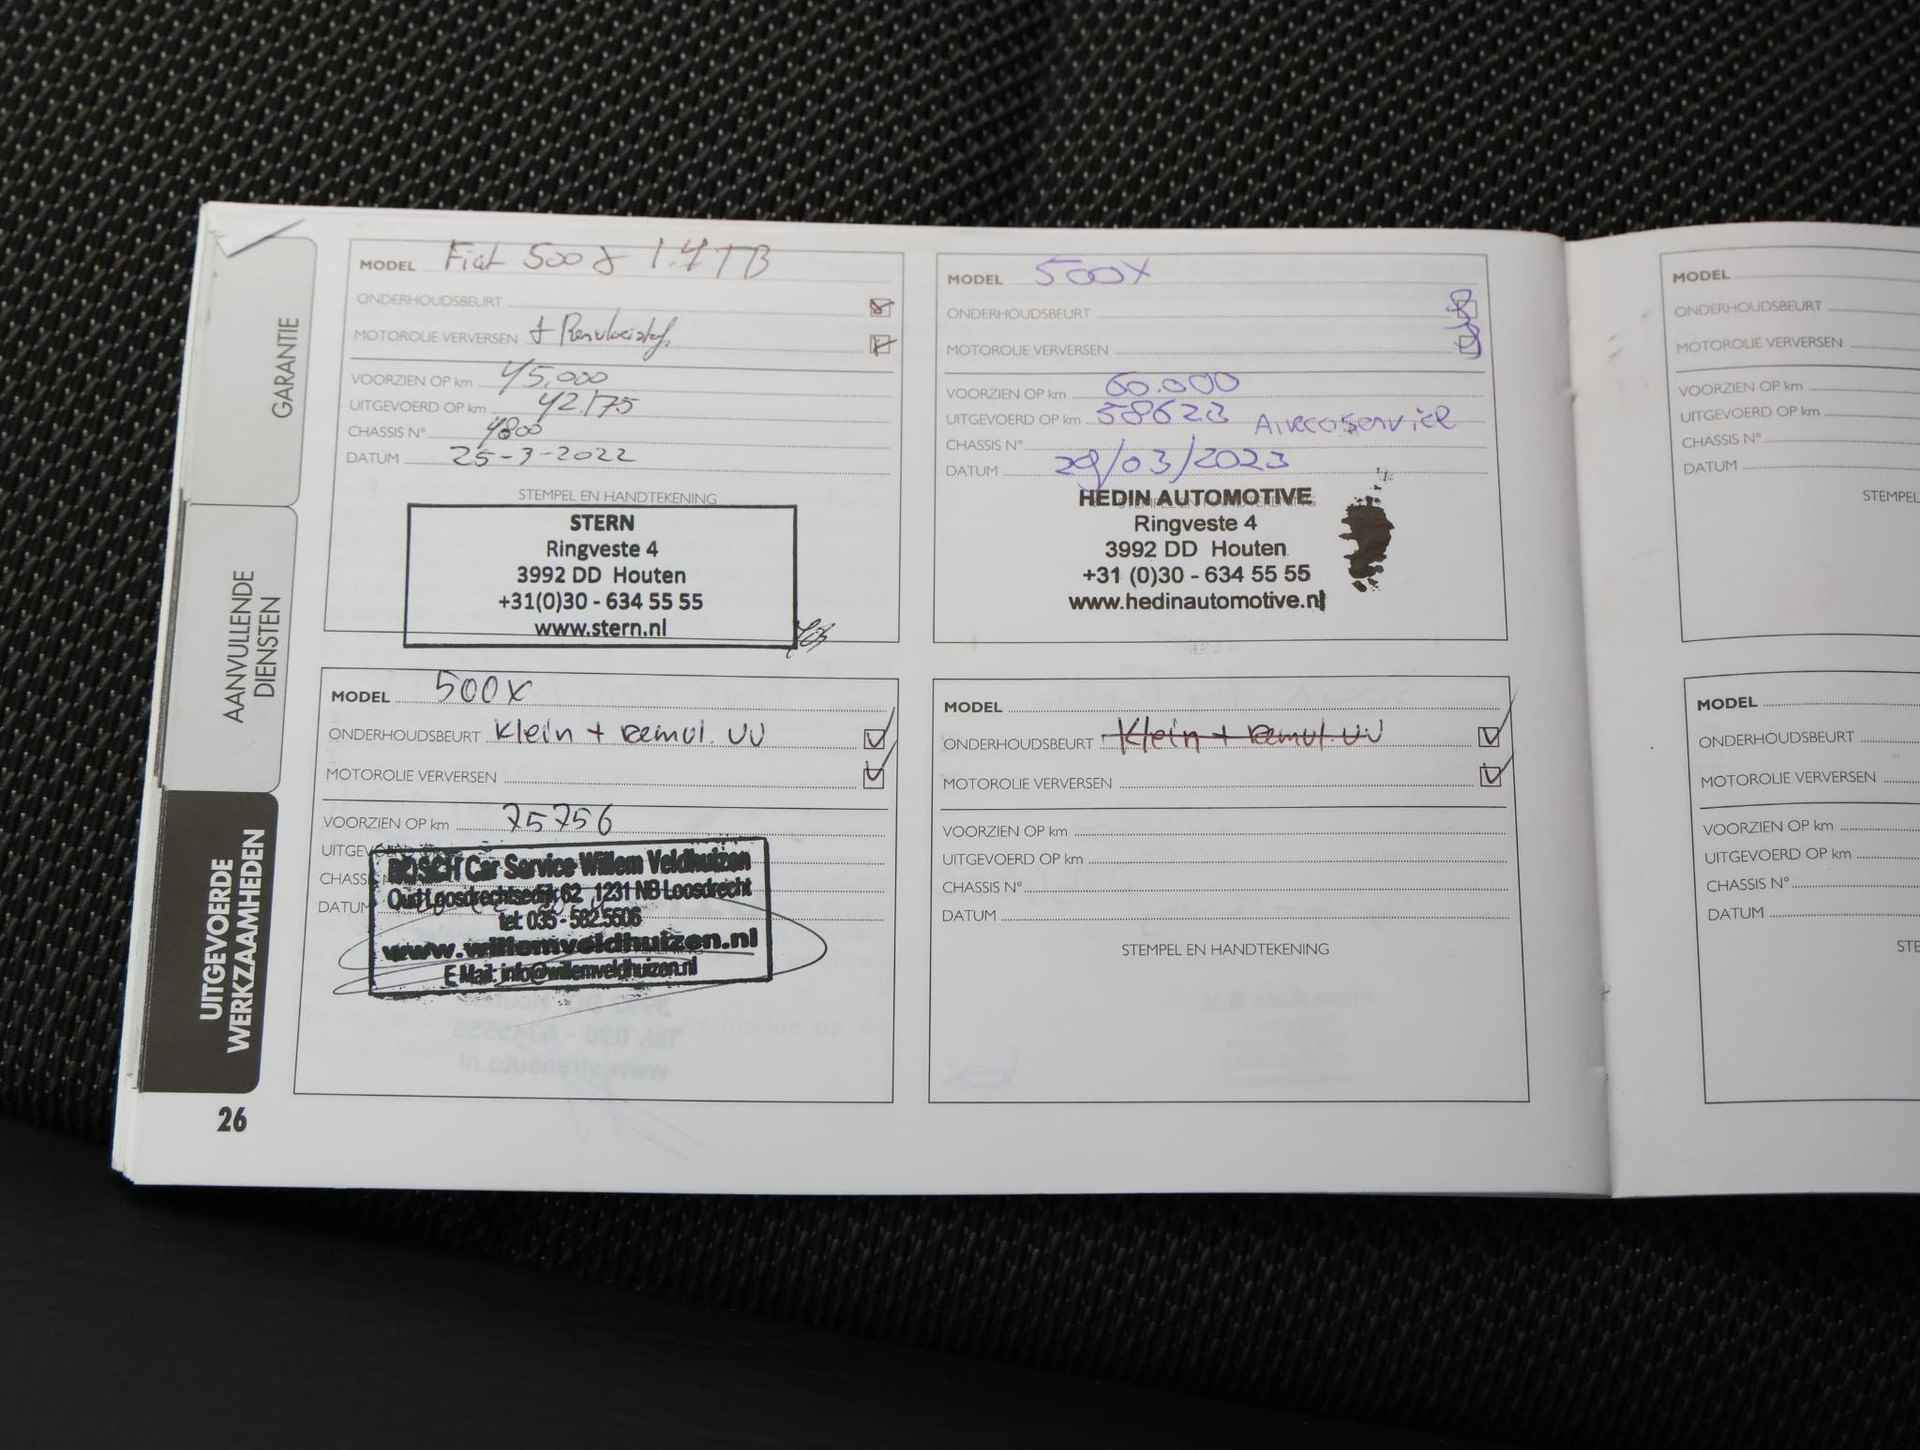 GARANTIE
AANVULLENDE
DIENSTEN
UITGEVOERDE
WERKZAAMHEDEN
26
MODEL Fiat 500 1.4 TB
ONDERHOUDSBEURT
MOTOROLIE VERVERSEN + Remvloeistof
VOORZIEN OP km 45.000
UITGEVOERD OP km 42175
CHASSIS N°
DATUM 25-3-2022
STEMPEL EN HANDTEKENING
STERN
Ringveste 4
3992 DD Houten
+31(0)30 - 634 55 55
www.stern.nl
MODEL 500X
ONDERHOUDSBEURT
MOTOROLIE VERVERSEN
VOORZIEN OP km 60.000
UITGEVOERD OP km 58623 Aircoservice
CHASSIS N°
DATUM 29/03/2023
HEDIN AUTOMOTIVE
Ringveste 4
3992 DD Houten
+31 (0)30 - 634 55 55
www.hedinautomotive.nl
MODEL 500X
ONDERHOUDSBEURT Klein + Remvl. VV
MOTOROLIE VERVERSEN
VOORZIEN OP km 75756
UITGEV
CHASS
DATUM
BOSCH Car Service Willem Veldhuizen
Oud Loosdrechtsedijk 62 1231 NB Loosdrecht
tel: 035 - 582 5506
www.willemveldhuizen.nl
E Mail: info@willemveldhuizen.nl
MODEL
ONDERHOUDSBEURT Klein + Remvl. VV
MOTOROLIE VERVERSEN
VOORZIEN OP km
UITGEVOERD OP km
CHASSIS N°
DATUM
STEMPEL EN HANDTEKENING
MODEL
ONDERHOUDSBEURT
MOTOROLIE VERVERSEN
VOORZIEN OP km
UITGEVOERD OP km
CHASSIS N°
DATUM
STEMPEL
MODEL
ONDERHOUDSBEURT
MOTOROLIE VERVERSEN
VOORZIEN OP km
UITGEVOERD OP km
CHASSIS N°
DATUM
STE